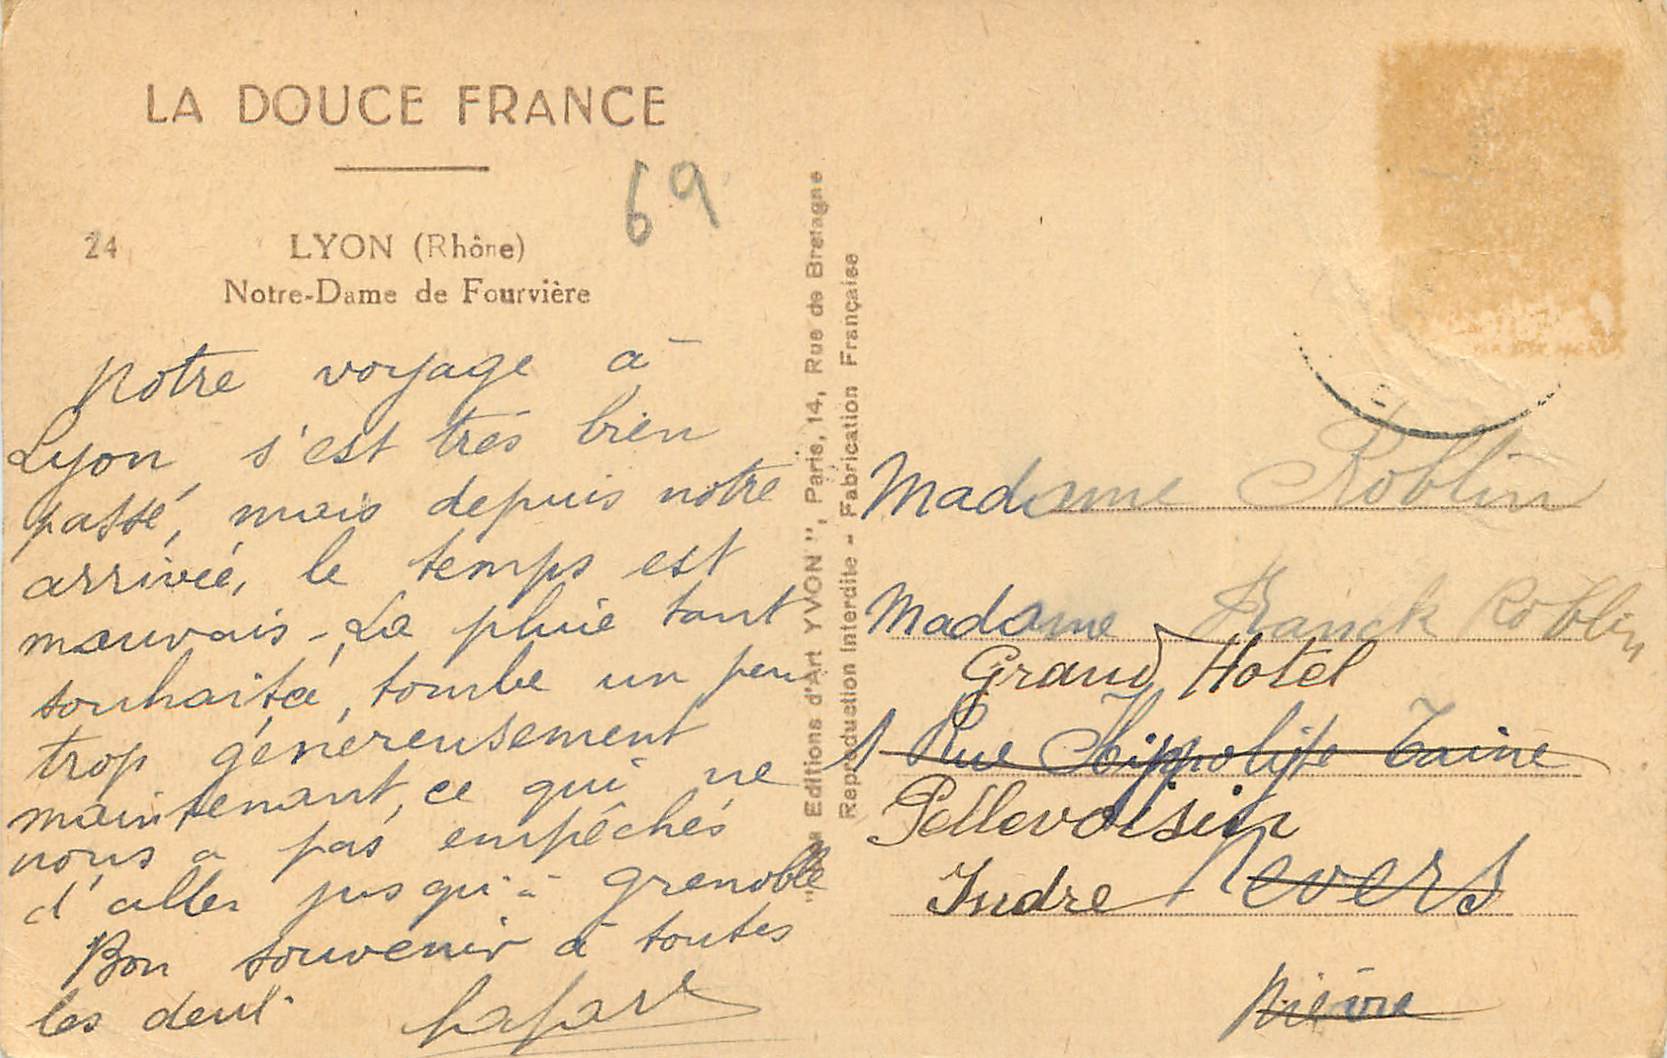 LA DOUCE FRANCE
69
24 LYON (Rhône)
Notre-Dame de Fourvière
Notre voyage à
Lyon s'est très bien
passé, mais depuis notre
arrivée, le temps est
mauvais - La pluie tant
souhaitée, tombe un peu
trop généreusement
maintenant, ce qui ne
nous a pas empêchés
d'aller jusqu'à Grenoble
Bon souvenir à toutes
les deux
Editions d'Art YVON", Paris, 14, Rue de Bretagne
Reproduction Interdite - Fabrication Française
Madame Roblin
Madame Franck Roblin
Grand Hotel
1 Rue Hippolyte Taine
Pellevoisin
Indre Nevers
Nièvre